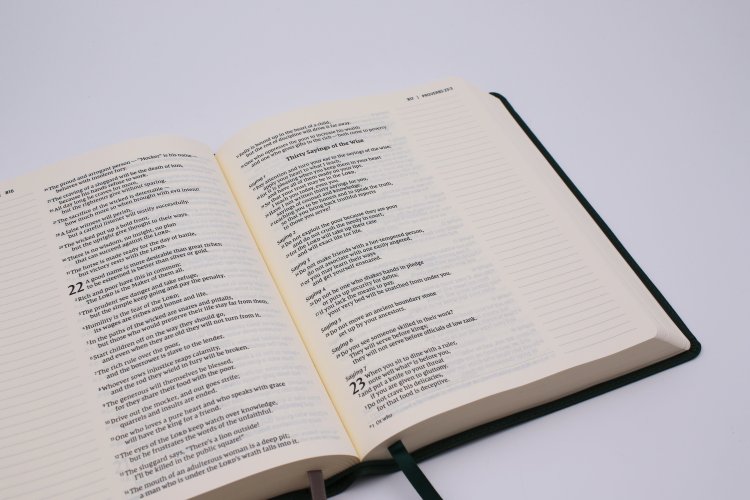 810
²⁴The proud and arrogant person — "Mocker" is his name —
behaves with insolent fury.
²⁵The craving of a sluggard will be the death of him,
because his hands refuse to work.
²⁶All day long he craves for more,
but the righteous give without sparing.
²⁷The sacrifice of the wicked is detestable —
how much more so when brought with evil intent!
²⁸A false witness will perish,
but a careful listener will testify successfully.
²⁹The wicked put up a bold front,
but the upright give thought to their ways.
³⁰There is no wisdom, no insight, no plan
that can succeed against the LORD.
³¹The horse is made ready for the day of battle,
but victory rests with the LORD.
22 A good name is more desirable than great riches;
to be esteemed is better than silver or gold.
²Rich and poor have this in common:
The LORD is the Maker of them all.
³The prudent see danger and take refuge,
but the simple keep going and pay the penalty.
⁴Humility is the fear of the LORD;
its wages are riches and honor and life.
⁵In the paths of the wicked are snares and pitfalls,
but those who would preserve their life stay far from them.
⁶Start children off on the way they should go,
and even when they are old they will not turn from it.
⁷The rich rule over the poor,
and the borrower is slave to the lender.
⁸Whoever sows injustice reaps calamity,
and the rod they wield in fury will be broken.
⁹The generous will themselves be blessed,
for they share their food with the poor.
¹⁰Drive out the mocker, and out goes strife;
quarrels and insults are ended.
¹¹One who loves a pure heart and who speaks with grace
will have the king for a friend.
¹²The eyes of the LORD keep watch over knowledge,
but he frustrates the words of the unfaithful.
¹³The sluggard says, "There's a lion outside!
I'll be killed in the public square!"
¹⁴The mouth of an adulterous woman is a deep pit;
a man who is under the LORD's wrath falls into it.
817 | PROVERBS 23:3
¹⁵Folly is bound up in the heart of a child,
but the rod of discipline will drive it far away.
¹⁶One who oppresses the poor to increase his wealth
and one who gives gifts to the rich — both come to poverty.
Thirty Sayings of the Wise
Saying 1
¹⁷Pay attention and turn your ear to the sayings of the wise;
apply your heart to what I teach,
¹⁸for it is pleasing when you keep them in your heart
and have all of them ready on your lips.
¹⁹So that your trust may be in the LORD,
I teach you today, even you.
²⁰Have I not written thirty sayings for you,
sayings of counsel and knowledge,
²¹teaching you to be honest and to speak the truth,
so that you bring back truthful reports
to those you serve?
Saying 2
²²Do not exploit the poor because they are poor
and do not crush the needy in court,
²³for the LORD will take up their case
and will exact life for life.
Saying 3
²⁴Do not make friends with a hot-tempered person,
do not associate with one easily angered,
²⁵or you may learn their ways
and get yourself ensnared.
Saying 4
²⁶Do not be one who shakes hands in pledge
or puts up security for debts;
²⁷if you lack the means to pay,
your very bed will be snatched from under you.
Saying 5
²⁸Do not move an ancient boundary stone
set up by your ancestors.
Saying 6
²⁹Do you see someone skilled in their work?
They will serve before kings;
they will not serve before officials of low rank.
Saying 7
23 When you sit to dine with a ruler,
note well what is before you,
²and put a knife to your throat
if you are given to gluttony.
³Do not crave his delicacies,
for that food is deceptive.
Or who